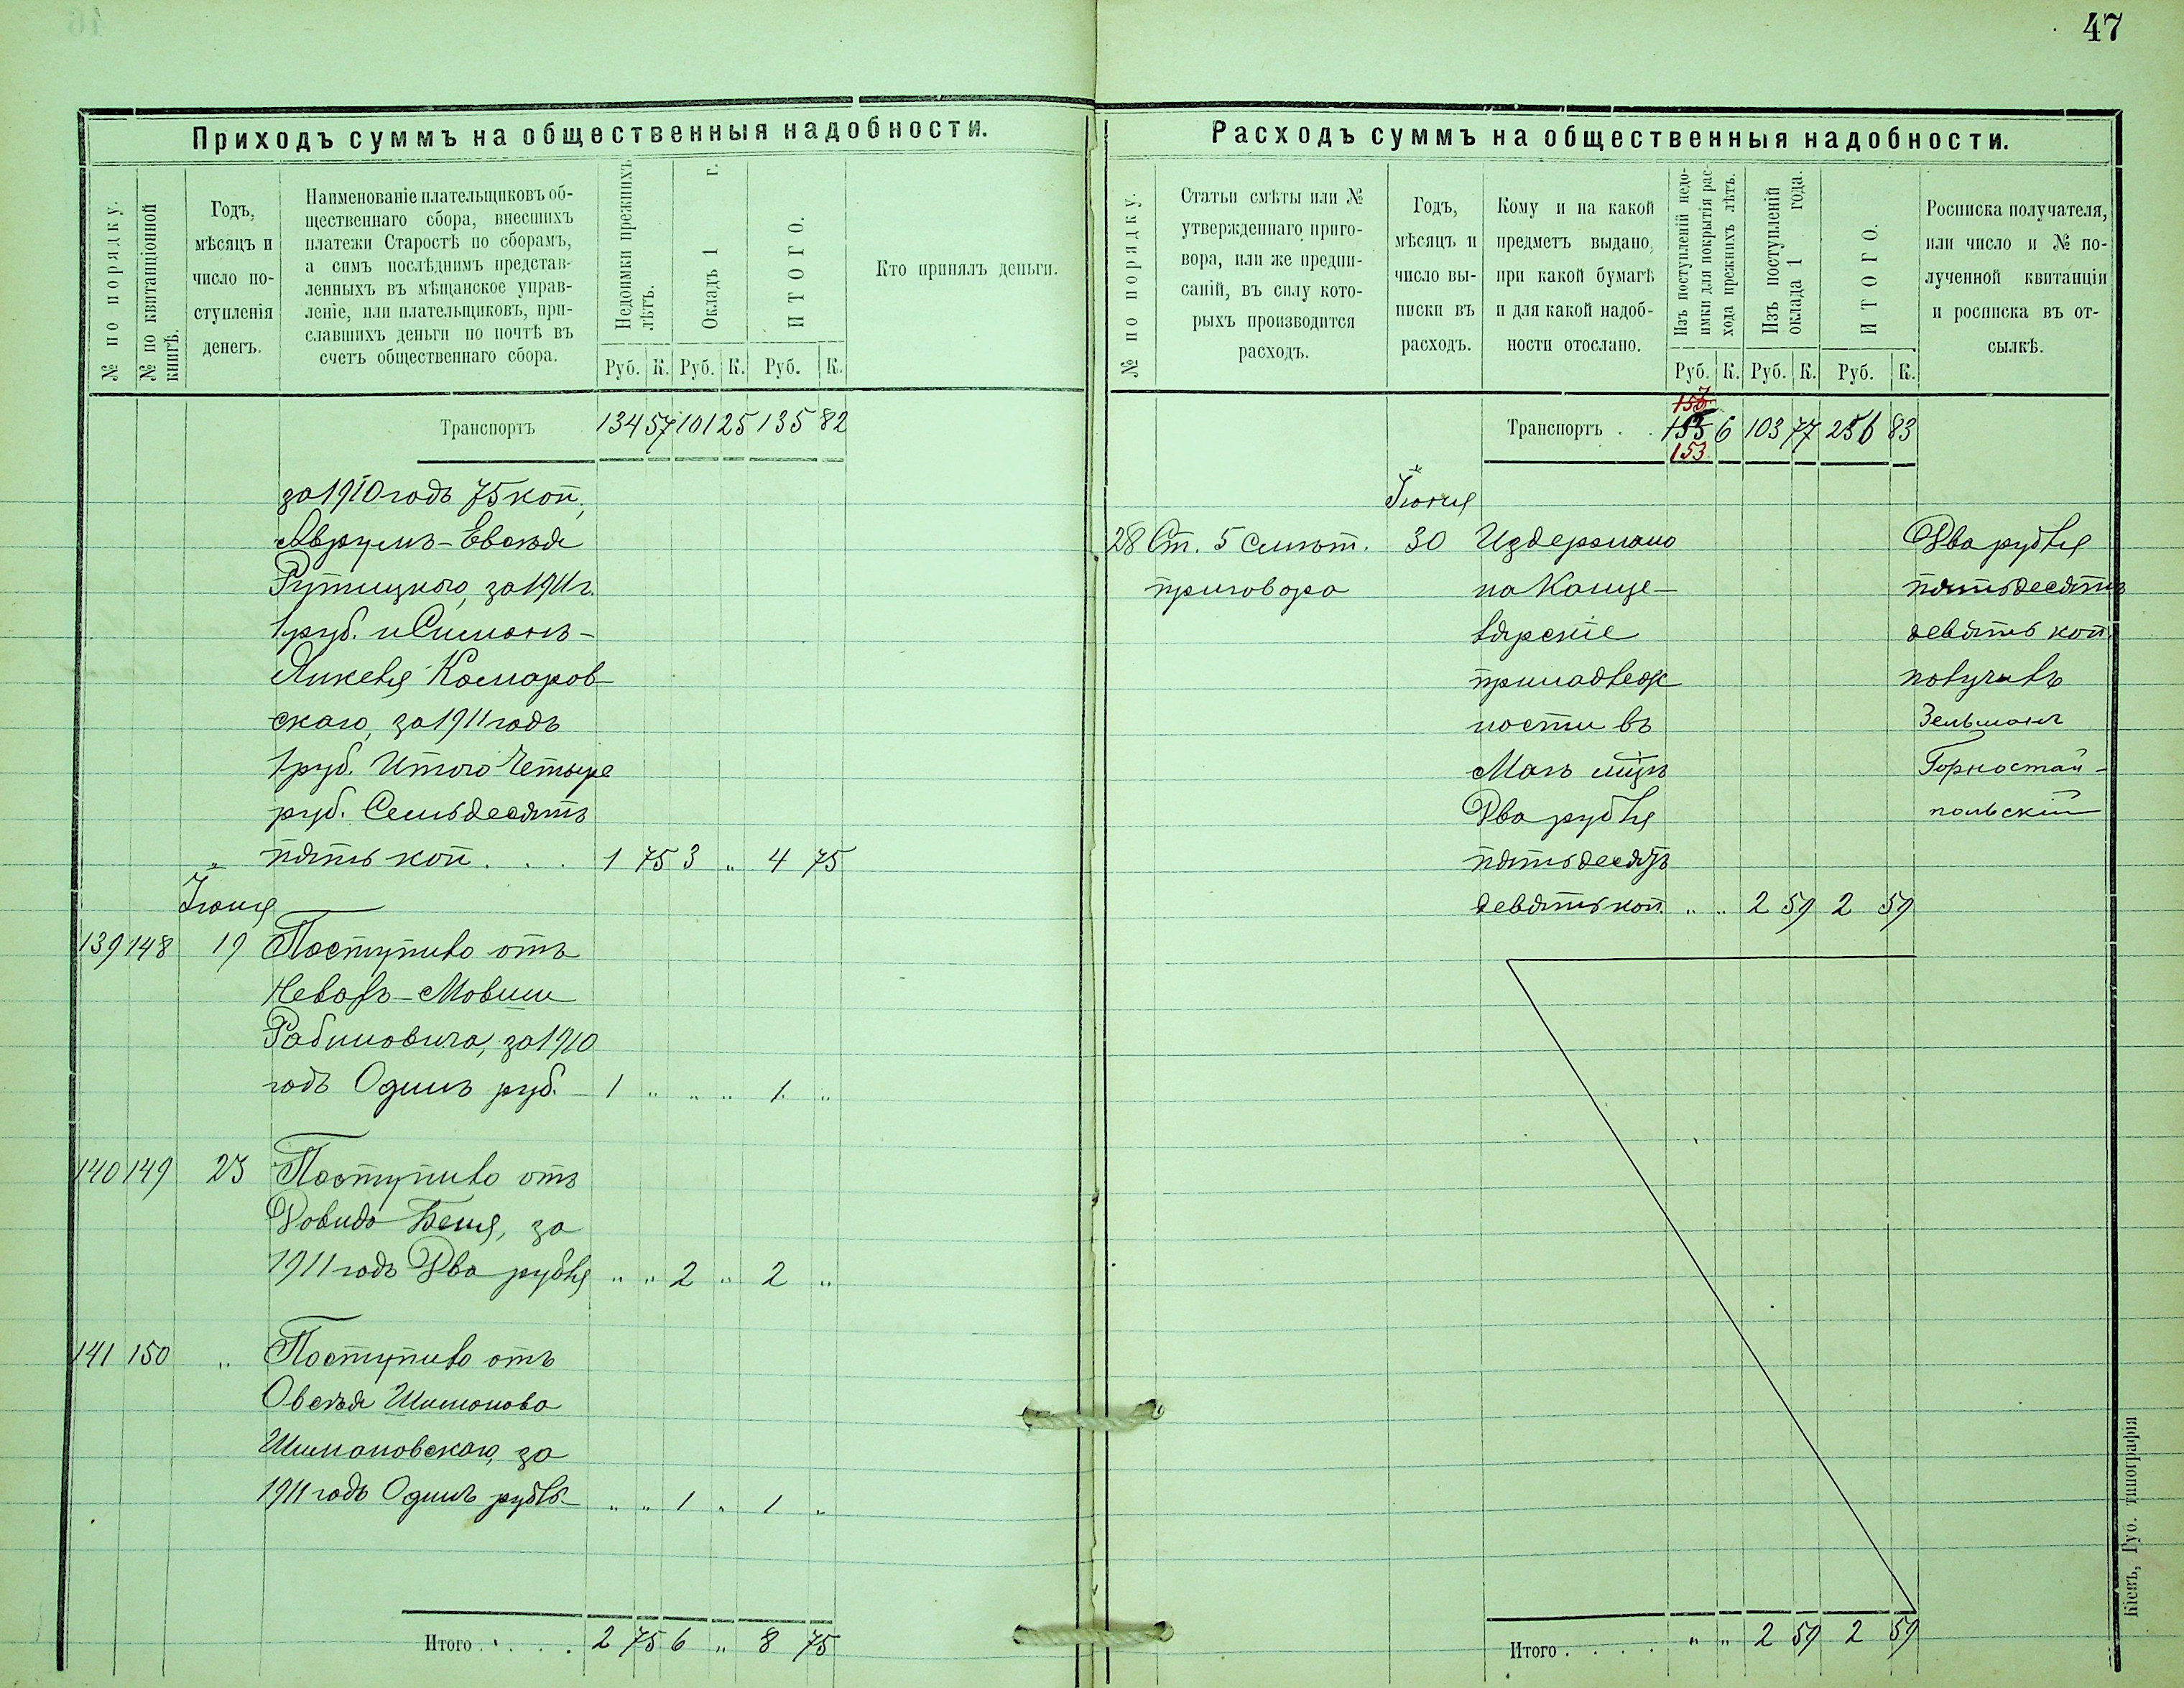 47
Приходъ суммъ на общественныя надобности.
№ по порядку.
№ по квитанціонной
книгѣ.
Годъ,
мѣсяцъ и
число по-
ступленія
денегъ.
Наименованіе плательщиковъ об-
щественнаго сбора, внесшихъ
платежи Старостѣ по сборамъ,
а симъ послѣднимъ представ-
ленныхъ въ мѣщанское управ-
леніе, или плательщиковъ, при-
славшихъ деньги по почтѣ въ
счетъ общественнаго сбора.
Недоимки прежнихъ
лѣтъ.
Окладъ 1 г.
ИТОГО.
Руб. К. Руб. К. Руб. К.
Кто принялъ деньги.
Транспортъ 134 57 101 25 135 82
за 1910 годъ 75 коп,
Аврумъ-Евсѣя
Рутицкого, за 1911 г.
1 руб. и Симонъ-
Янкеля Комаров-
скаго, за 1911 годъ
1 руб. Итого Четыре
руб. Семьдесятъ
пять коп. . . 1 75 3 „ 4 75
Іюня
139 148 19 Поступило отъ
Мовши
Рабиновича, за 1910
годъ Одинъ руб. 1 „ „ „ 1 „
140 149 23 Поступило отъ
Довида Беня, за
1911 годъ Два рубля „ „ 2 „ 2 „
141 150 „ Поступило отъ
Овсѣя Шимонова
Шимановскаго, за
1911 годъ Одинъ рубль „ „ 1 „ 1 „
Итого . . . . 2 75 6 „ 8 75
Расходъ суммъ на общественныя надобности.
№ по порядку.
Статьи смѣты или №
утвержденнаго приго-
вора, или же предпи-
саній, въ силу кото-
рыхъ производится
расходъ.
Годъ,
мѣсяцъ и
число вы-
писки въ
расходъ.
Кому и на какой
предметъ выдано,
при какой бумагѣ
и для какой надоб-
ности отослано.
Изъ поступленій недо-
имки для покрытія рас-
хода прежнихъ лѣтъ.
Изъ поступленій
оклада 1 года.
ИТОГО.
Руб. К. Руб. К. Руб. К.
Росписка получателя,
или число и № по-
лученной квитанціи
и росписка въ от-
сылкѣ.
Транспортъ . . 153 6 103 77 256 83
153
Іюня
28 Ст. 5 смѣт. 30 Издержано Два рубля
приговора на Канце- пятьдесятъ
лярскіе девять коп.
принадлеж получилъ
ности въ Зельманъ
Маѣ мцѣ Горностай-
Два рубля польскій
пятьдесятъ
девять коп. „ „ 2 59 2 59
Итого . . . . „ „ 2 59 2 59
Кіевъ, Губ. типографія